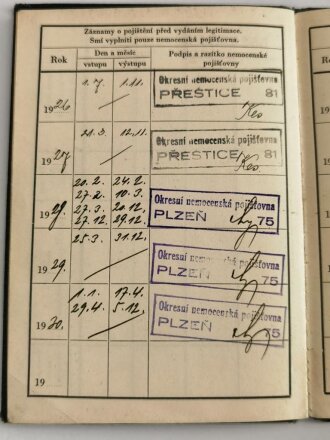 Záznamy o pojištění před vydáním legitimace.
Smí vyplniti pouze nemocenská pojišťovna.
Rok
Den a měsíc
vstupu
výstupu
Podpis a razítko nemocenské pojišťovny
1926
1.7.
1.11.
Okresní nemocenská pojišťovna
PŘEŠTICE 81
1927
21.3.
12.11.
Okresní nemocenská pojišťovna
PŘEŠTICE 81
1928.
20.2. 24.2.
27.2. 10.3.
27.3. 20.12.
27.12. 29.12.
Okresní nemocenská pojišťovna
PLZEŇ 75
1929.
25.3. 31.12.
Okresní nemocenská pojišťovna
PLZEŇ 75
1930.
1.1. 17.4.
29.4. 5.12.
Okresní nemocenská pojišťovna
PLZEŇ 75
19